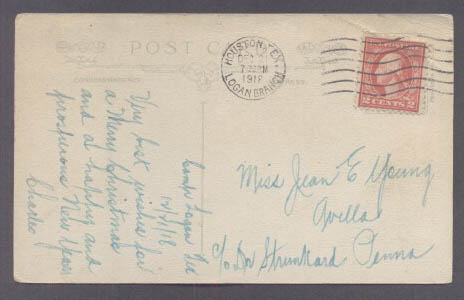 POST
HOUSTON, TEX.
DEC
1918
LOGAN BRANCH
2 CENTS 2
Camp Logan Tex
12/21/18
Very best wishes for
a Merry Christmas
and a happy and
prosperous New Year
Charlie
Miss Jean E Young
Avella
c/o Dr Strunkard Penna